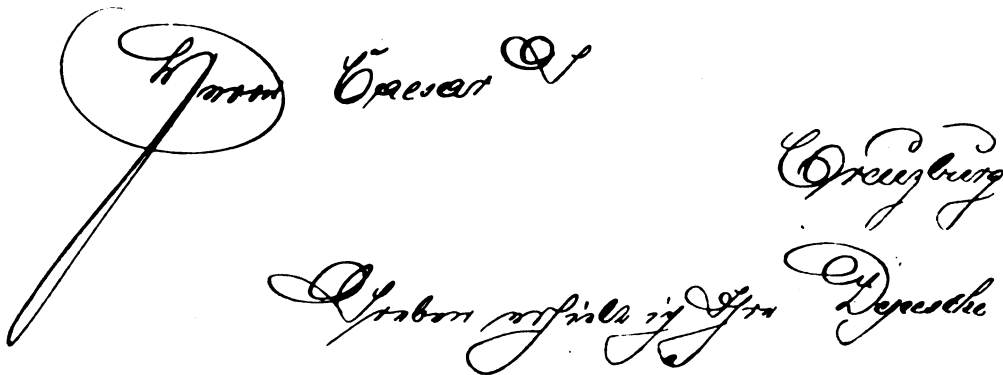 Herrn Caesar
Creuzburg
Soeben erhielt ich Ihre Depesche